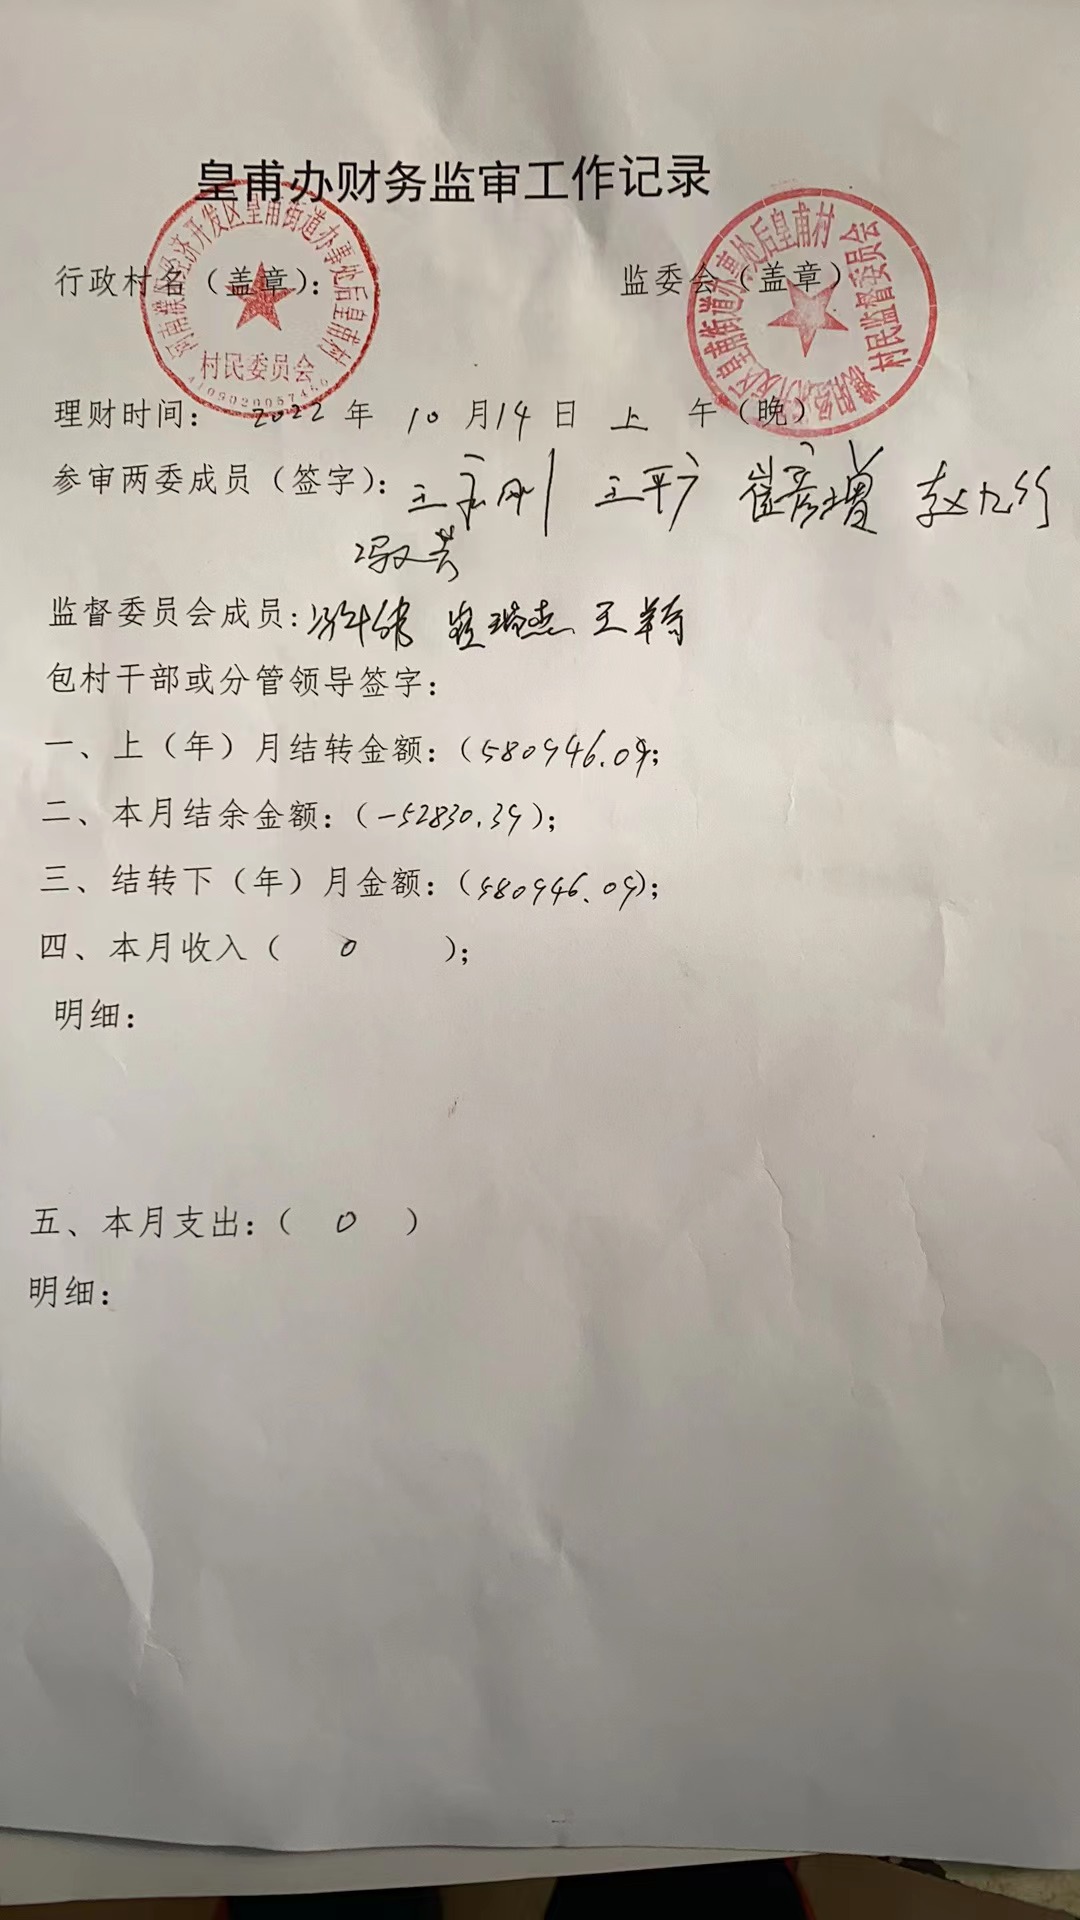 皇甫办财务监审工作记录
河南濮阳经济开发区皇甫街道办事处后皇甫村
村民委员会
行政村名（盖章）：
监委会（盖章）
后皇甫村
村民监督委员会
理财时间： 2022 年 10 月 14 日 上 午（晚）
参审两委成员（签字）： 王平 崔彦增
监督委员会成员：
包村干部或分管领导签字：
一、上（年）月结转金额：（580946.09；
二、本月结余金额：（-52830.39）；
三、结转下（年）月金额：（580946.09）；
四、本月收入（ 0 ）；
明细：
五、本月支出：（ 0 ）
明细：